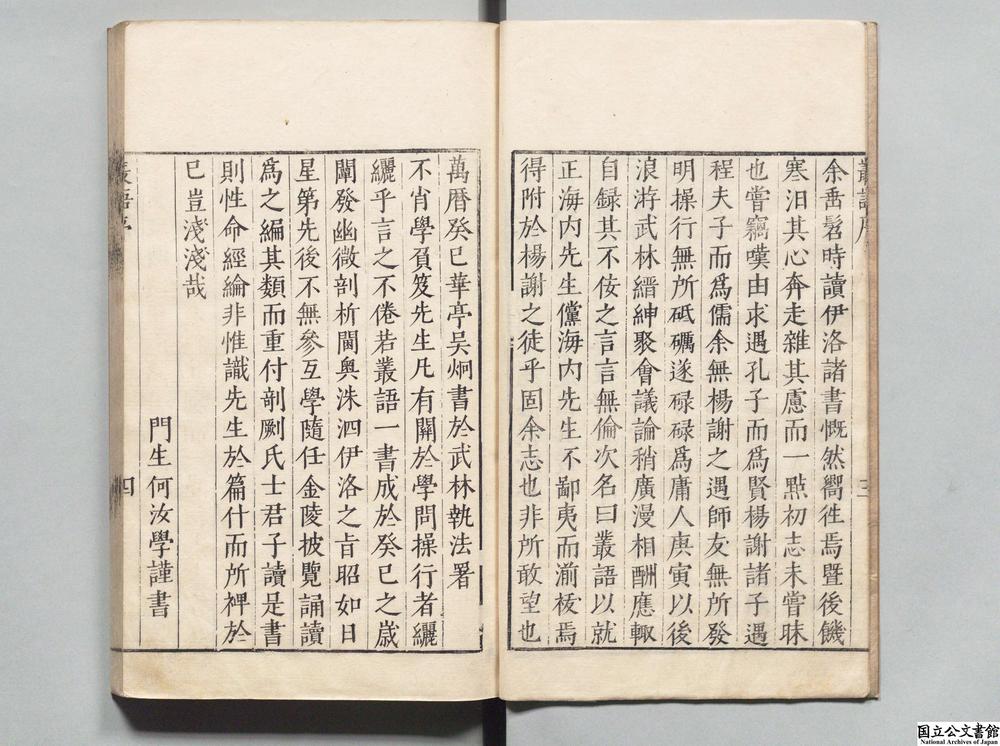 叢語序
三
余垂髫時讀伊洛諸書慨然嚮徃焉曁後饑
寒汨其心奔走雜其慮而一㸃初志未嘗昧
也嘗竊嘆由求遇孔子而爲賢楊謝諸子遇
程夫子而爲儒余無楊謝之遇師友無所發
明操行無所砥礪遂碌碌爲庸人庚寅以後
浪游武林縉紳聚會議論稍廣漫相酬應輙
自録其不佞之言言無倫次名曰叢語以就
正海内先生儻海内先生不鄙夷而湔祓焉
得附於楊謝之徒乎固余志也非所敢望也
萬曆癸巳華亭吴炯書於武林執法署
不肖學負笈先生凡有關於學問操行者纚
纚乎言之不倦若叢語一書成於癸巳之歲
闡發幽微剖析閫奥洙泗伊洛之旨昭如日
星第先後不無參互學隨任金陵披覽誦讀
爲之編其類而重付剞劂氏士君子讀是書
則性命經綸非惟識先生於篇什而所裨於
巳豈淺淺哉
門生何汝學謹書
叢語序
四
国立公文書館
National Archives of Japan